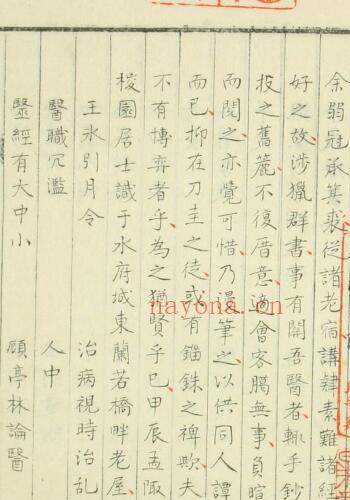 余弱冠承箕裘從諸老宿講肄素難諸經
好之故涉獵群書事有關吾醫者輙手鈔
投之舊簏不復厝意適會客臈無事負暄
而閱之亦覺可惜乃漫筆之以供同人譚
而已抑在刀圭之徒或有錙銖之裨歟夫
不有博弈者乎為之猶賢乎已甲辰孟陬
棭園居士識于水府城東蘭若橋畔老屋
王冰引月令 治病視時治乱
醫職冗濫 人中
毉經有大中小 顧亭林論醫
nayona.cn